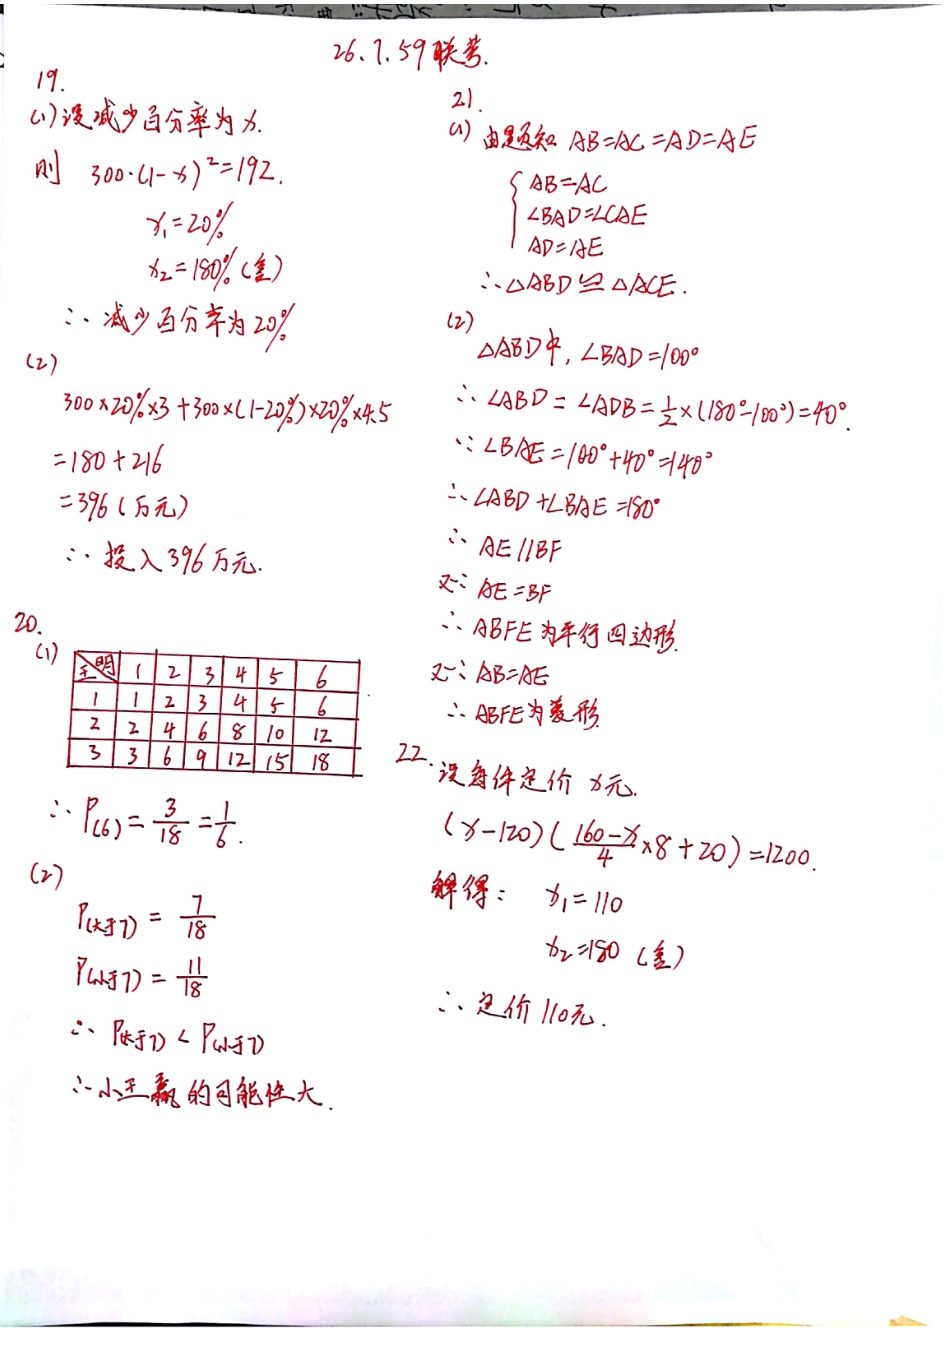 26.7.59联考.
19.
(1)设减少百分率为x.
则 300·(1-x)²=192.
x₁=20%
x₂=180%(舍)
∴减少百分率为20%
(2)
300×20%×3+300×(1-20%)×20%×4.5
=180+216
=396(万元)
∴投入396万元.
20.
(1)
王 明 1 2 3 4 5 6
1 1 2 3 4 5 6
2 2 4 6 8 10 12
3 3 6 9 12 15 18
∴P(6)=3/18=1/6.
(2)
P(大于7)=7/18
P(小于7)=11/18
∴P(大于7)<P(小于7)
∴小王赢的可能性大.
21.
(1)由题知 AB=AC=AD=AE
AB=AC
∠BAD=∠CAE
AD=AE
∴△ABD≌△ACE.
(2)
△ABD中,∠BAD=100°
∴∠ABD=∠ADB=1/2×(180°-100°)=40°.
∵∠BAE=100°+40°=140°
∴∠ABD+∠BAE=180°
∴AE//BF
又∵AE=BF
∴ABFE为平行四边形.
又∵AB=AE
∴ABFE为菱形.
22.设每件定价x元.
(x-120)(160-x/4×8+20)=1200.
解得: x₁=110
x₂=180(舍)
∴定价110元.